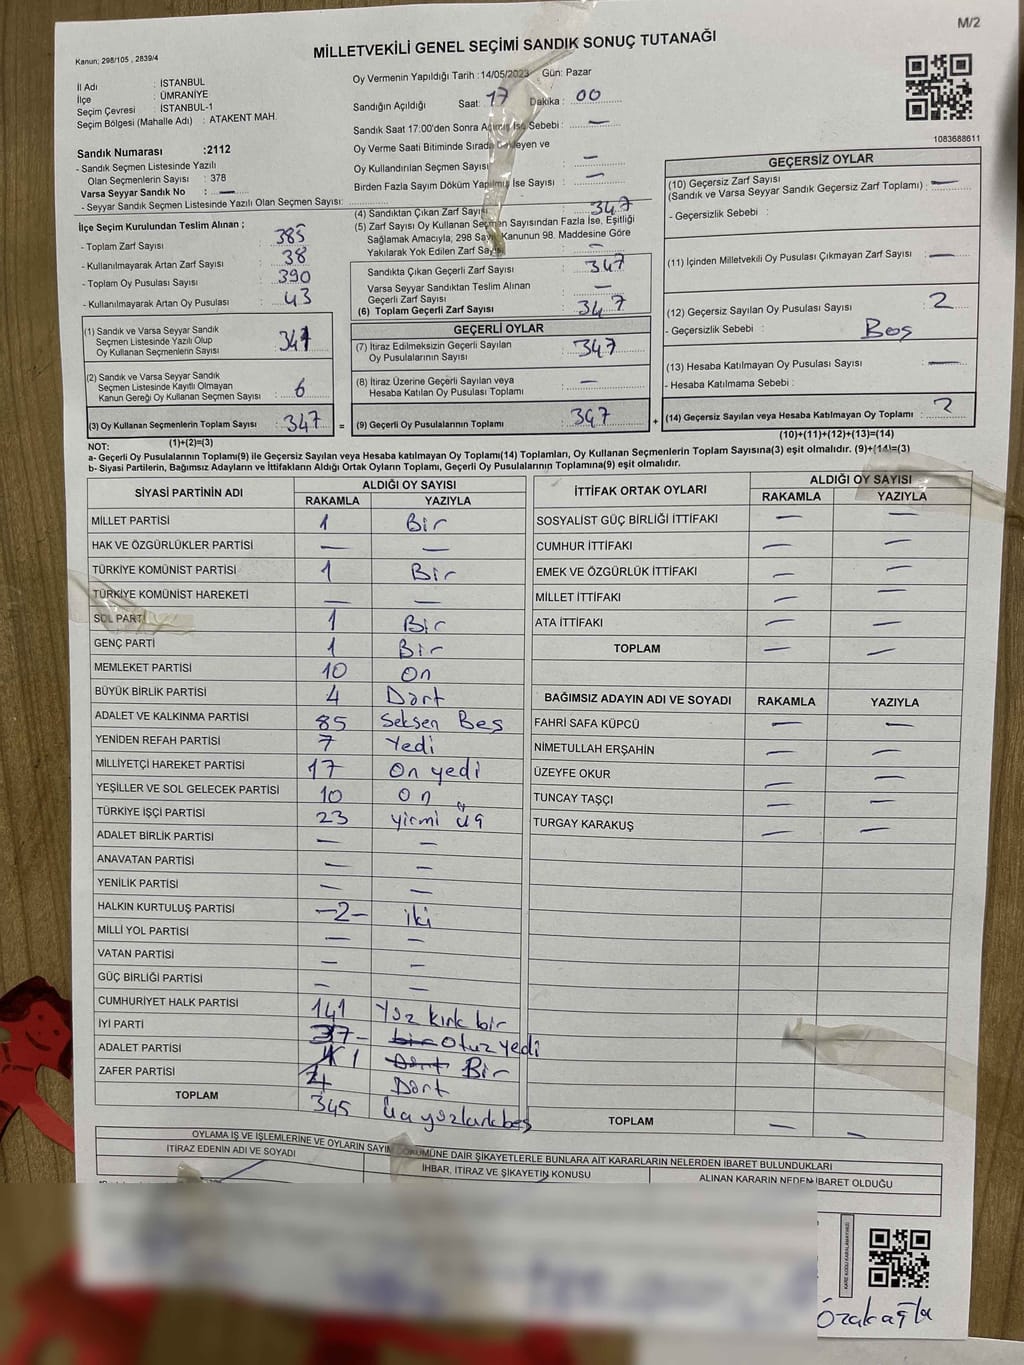 M/2
MİLLETVEKİLİ GENEL SEÇİMİ SANDIK SONUÇ TUTANAĞI
Kanun; 298/105 , 2839/4
İl Adı : İSTANBUL
İlçe : ÜMRANİYE
Seçim Çevresi : İSTANBUL-1
Seçim Bölgesi (Mahalle Adı) : ATAKENT MAH.
Oy Vermenin Yapıldığı Tarih :14/05/2023 Gün: Pazar
Sandığın Açıldığı Saat: 17 Dakika : 00
Sandık Saat 17:00'den Sonra Açılmış İse Sebebi : —
Oy Verme Saati Bitiminde Sırada Bekleyen ve
Oy Kullandırılan Seçmen Sayısı : —
Birden Fazla Sayım Döküm Yapılmış İse Sayısı : —
1083688611
Sandık Numarası :2112
- Sandık Seçmen Listesinde Yazılı
Olan Seçmenlerin Sayısı : 378
Varsa Seyyar Sandık No : —
- Seyyar Sandık Seçmen Listesinde Yazılı Olan Seçmen Sayısı:
İlçe Seçim Kurulundan Teslim Alınan ;
- Toplam Zarf Sayısı : 385
- Kullanılmayarak Artan Zarf Sayısı : 38
- Toplam Oy Pusulası Sayısı : 390
- Kullanılmayarak Artan Oy Pusulası : 43
(1) Sandık ve Varsa Seyyar Sandık
Seçmen Listesinde Yazılı Olup
Oy Kullanan Seçmenlerin Sayısı : 341
(2) Sandık ve Varsa Seyyar Sandık
Seçmen Listesinde Kayıtlı Olmayan
Kanun Gereği Oy Kullanan Seçmen Sayısı : 6
(3) Oy Kullanan Seçmenlerin Toplam Sayısı : 347 =
(1)+(2)=(3)
(4) Sandıktan Çıkan Zarf Sayısı : 347
(5) Zarf Sayısı Oy Kullanan Seçmen Sayısından Fazla İse, Eşitliği
Sağlamak Amacıyla, 298 Sayılı Kanunun 98. Maddesine Göre
Yakılarak Yok Edilen Zarf Sayısı : —
Sandıkta Çıkan Geçerli Zarf Sayısı : 347
Varsa Seyyar Sandıktan Teslim Alınan
Geçerli Zarf Sayısı : —
(6) Toplam Geçerli Zarf Sayısı : 347
GEÇERLİ OYLAR
(7) İtiraz Edilmeksizin Geçerli Sayılan
Oy Pusulalarının Sayısı : 347
(8) İtiraz Üzerine Geçerli Sayılan veya
Hesaba Katılan Oy Pusulası Toplamı : —
(9) Geçerli Oy Pusulalarının Toplamı : 347 +
GEÇERSİZ OYLAR
(10) Geçersiz Zarf Sayısı
(Sandık ve Varsa Seyyar Sandık Geçersiz Zarf Toplamı) : —
- Geçersizlik Sebebi :
(11) İçinden Milletvekili Oy Pusulası Çıkmayan Zarf Sayısı : —
(12) Geçersiz Sayılan Oy Pusulası Sayısı : 2
- Geçersizlik Sebebi : Boş
(13) Hesaba Katılmayan Oy Pusulası Sayısı : —
- Hesaba Katılmama Sebebi :
(14) Geçersiz Sayılan veya Hesaba Katılmayan Oy Toplamı : 2
(10)+(11)+(12)+(13)=(14)
NOT:
a- Geçerli Oy Pusulasının Toplamı(9) ile Geçersiz Sayılan veya Hesaba katılmayan Oy Toplamı(14) Toplamları, Oy Kullanan Seçmenlerin Toplam Sayısına(3) eşit olmalıdır. (9)+(14)=(3)
b- Siyasi Partilerin, Bağımsız Adayların ve İttifakların Aldığı Ortak Oyların Toplamı, Geçerli Oy Pusulalarının Toplamına(9) eşit olmalıdır.
SİYASİ PARTİNİN ADI ALDIĞI OY SAYISI
RAKAMLA YAZIYLA
MİLLET PARTİSİ 1 Bir
HAK VE ÖZGÜRLÜKLER PARTİSİ — —
TÜRKİYE KOMÜNİST PARTİSİ 1 Bir
TÜRKİYE KOMÜNİST HAREKETİ — —
SOL PARTİ 1 Bir
GENÇ PARTİ 1 Bir
MEMLEKET PARTİSİ 10 On
BÜYÜK BİRLİK PARTİSİ 4 Dört
ADALET VE KALKINMA PARTİSİ 85 Seksen Beş
YENİDEN REFAH PARTİSİ 7 Yedi
MİLLİYETÇİ HAREKET PARTİSİ 17 On yedi
YEŞİLLER VE SOL GELECEK PARTİSİ 10 On
TÜRKİYE İŞÇİ PARTİSİ 23 yirmi üç
ADALET BİRLİK PARTİSİ — —
ANAVATAN PARTİSİ — —
YENİLİK PARTİSİ — —
HALKIN KURTULUŞ PARTİSİ —2— iki
MİLLİ YOL PARTİSİ — —
VATAN PARTİSİ — —
GÜÇ BİRLİĞİ PARTİSİ — —
CUMHURİYET HALK PARTİSİ 141 Yüz kırk bir
İYİ PARTİ 37- bir Otuz yedi
ADALET PARTİSİ 1 Dört Bir
ZAFER PARTİSİ 4 Dört
TOPLAM 345 Üç yüz kırk beş
İTTİFAK ORTAK OYLARI ALDIĞI OY SAYISI
RAKAMLA YAZIYLA
SOSYALİST GÜÇ BİRLİĞİ İTTİFAKI — —
CUMHUR İTTİFAKI — —
EMEK VE ÖZGÜRLÜK İTTİFAKI — —
MİLLET İTTİFAKI — —
ATA İTTİFAKI — —
TOPLAM — —
BAĞIMSIZ ADAYIN ADI VE SOYADI RAKAMLA YAZIYLA
FAHRİ SAFA KÜPCÜ — —
NİMETULLAH ERŞAHİN — —
ÜZEYFE OKUR — —
TUNCAY TAŞÇI — —
TURGAY KARAKUŞ — —
TOPLAM — —
OYLAMA İŞ VE İŞLEMLERİNE VE OYLARIN SAYIM DÖKÜMÜNE DAİR ŞİKAYETLERLE BUNLARA AİT KARARLARIN NELERDEN İBARET BULUNDUKLARI
İTİRAZ EDENİN ADI VE SOYADI İHBAR, İTİRAZ VE ŞİKAYETİN KONUSU ALINAN KARARIN NEDEN İBARET OLDUĞU